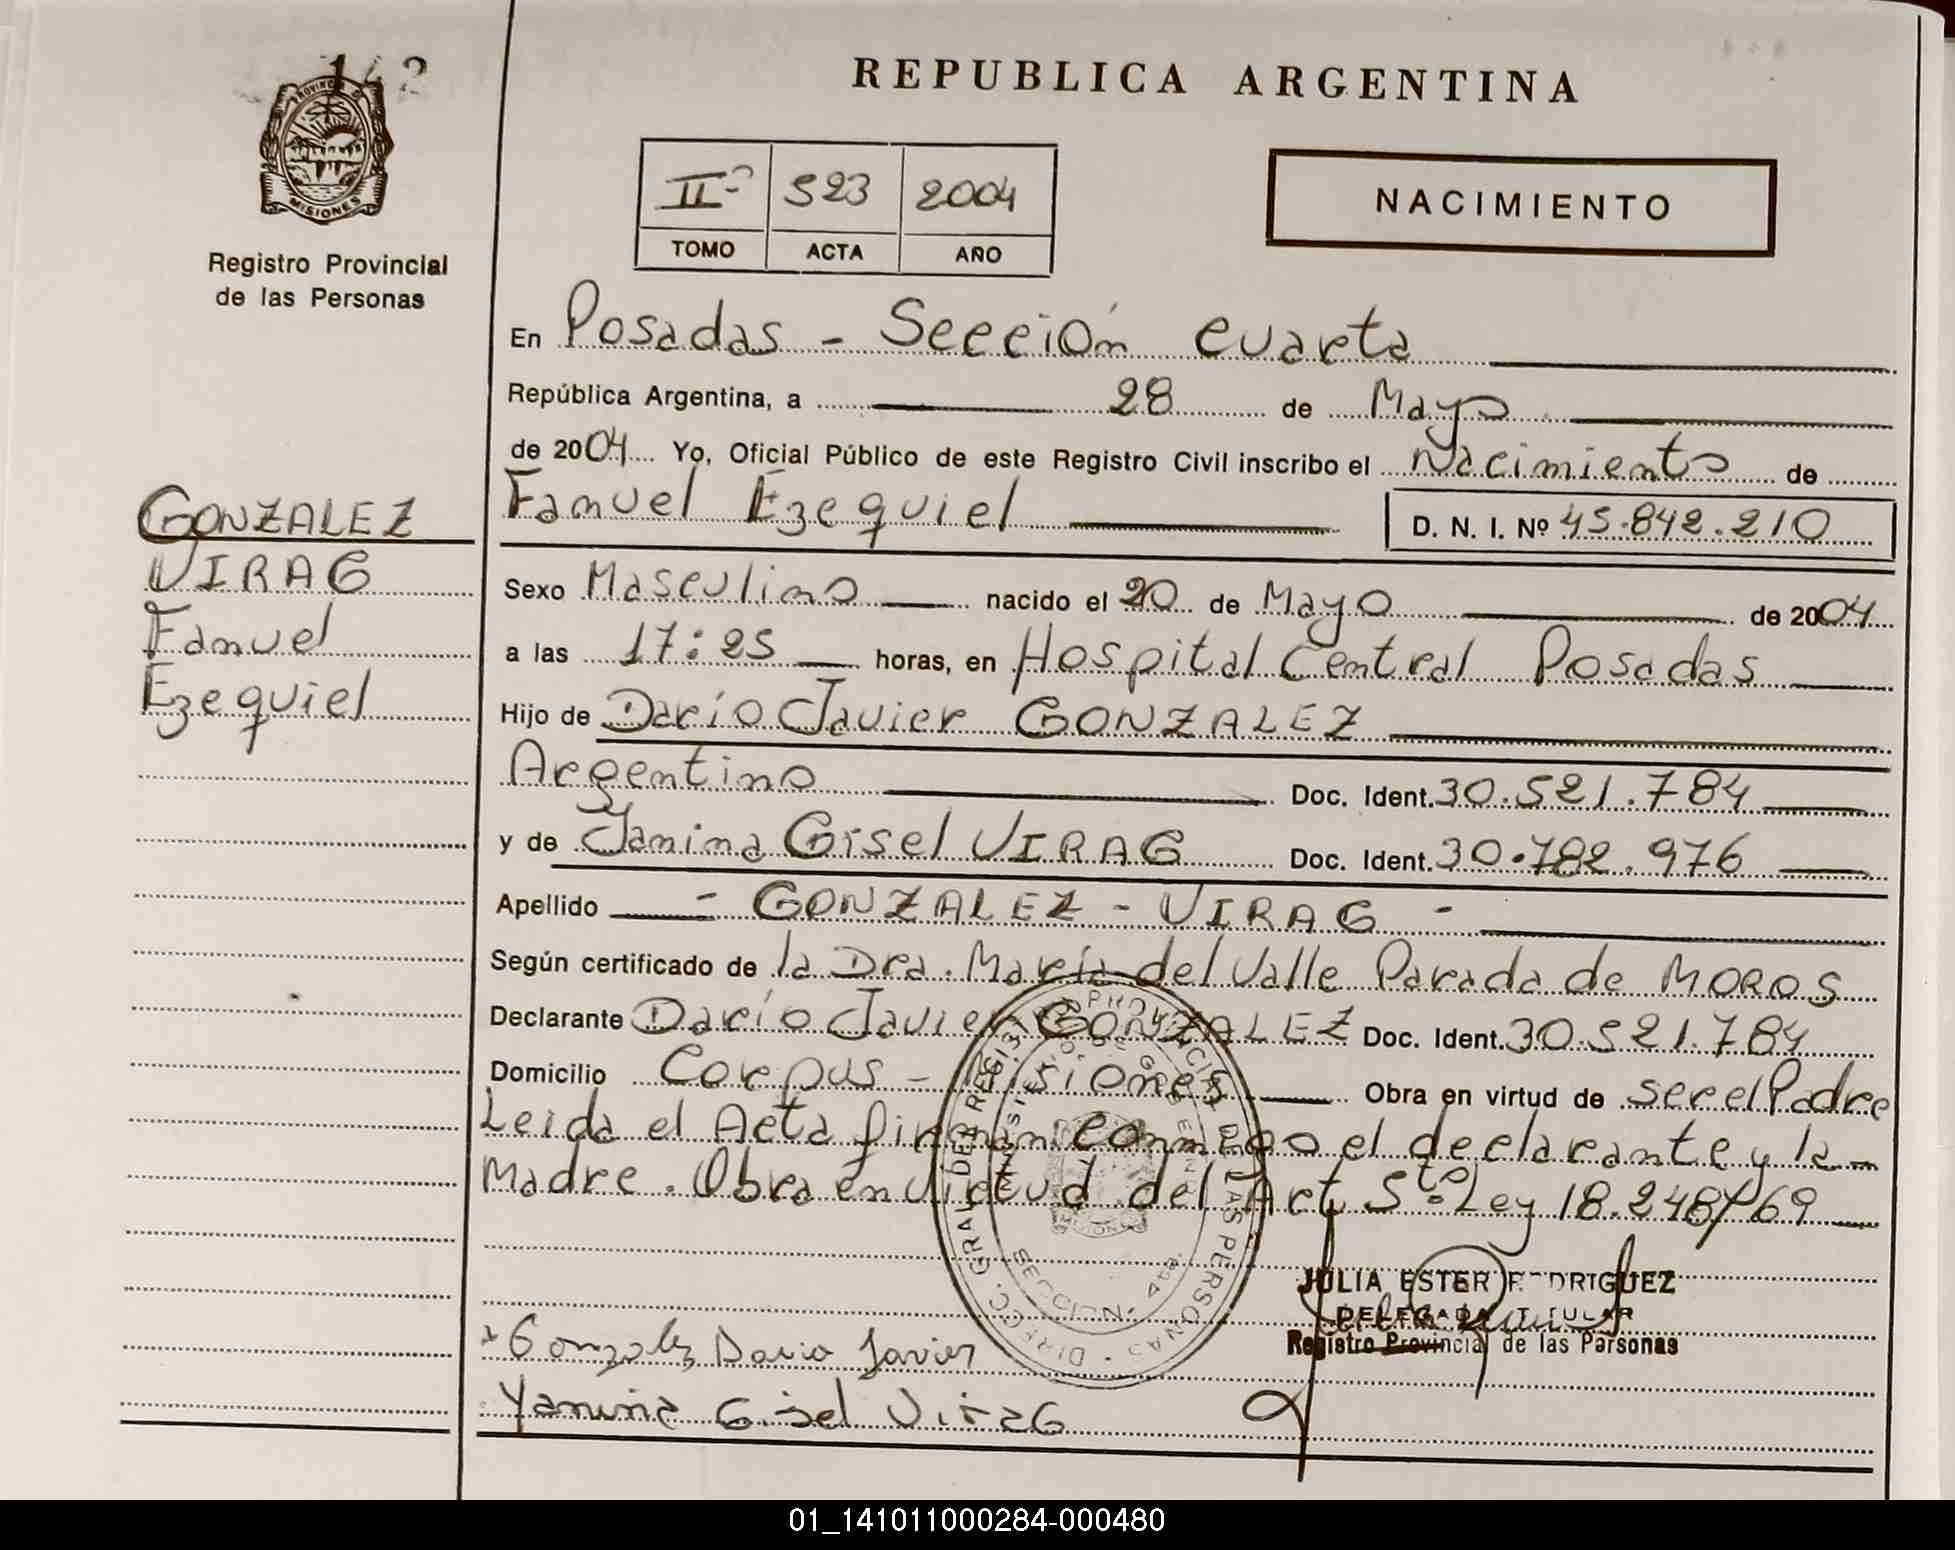 142
REPUBLICA ARGENTINA
PROVINCIA DE
MISIONES
Registro Provincial
de las Personas
IIº 523 2004
TOMO ACTA AÑO
NACIMIENTO
En Posadas - Sección cuarta
República Argentina, a 28 de Mayo
de 2004 Yo, Oficial Público de este Registro Civil inscribo el Nacimiento de
Famuel Ezequiel D. N. I. Nº 45.842.210
GONZALEZ
VIRAG
Famuel
Ezequiel
Sexo Masculino nacido el 20 de Mayo de 2004
a las 17:25 horas, en Hospital Central Posadas
Hijo de Darío Javier GONZALEZ
Argentino Doc. Ident. 30.521.784
y de Yanina Gisel VIRAG Doc. Ident. 30.782.976
Apellido - GONZALEZ - VIRAG -
Según certificado de la Dra. María del Valle Parada de MOROS
Declarante Darío Javier GONZALEZ Doc. Ident. 30.521.784
Domicilio Corpus - Misiones Obra en virtud de ser el Padre
Leida el Acta firman conmigo el declarante y la
Madre. Obra en virtud del Art 5to. Ley 18.248/69
DIRECC. GRAL. DEL REGISTRO PROVINCIAL DE LAS PERSONAS
MISIONES
SECCION 4ta.
JULIA ESTER RODRIGUEZ
DELEGADA TITULAR
Registro Provincial de las Personas
Gonzalez Dario Javier
Yanina Gisel Virag
01_141011000284-000480